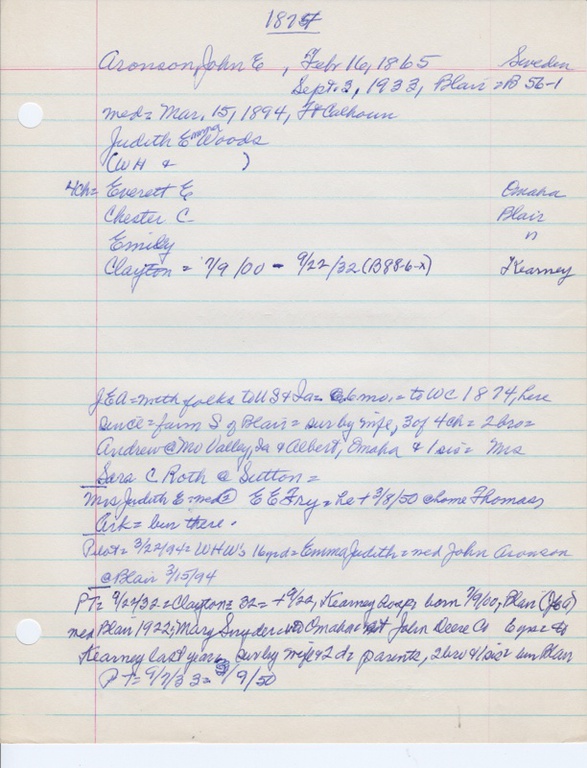 1874
Aronson, John E , Feb 16, 1865 Sweden
Sept. 3, 1933, Blair = B 56-1
med = Mar. 15, 1894, Ft Calhoun
Judith Emma Woods
(WH & )
4ch = Everett E Omaha
Chester C. Blair
Emily "
Clayton = 7/9/00 - 9/22/32 (B88-6-x) Kearney
JEA = with folks to US & Ia = @ 6 mo. = to WC 1874, here
since = farm S of Blair = sur by wife, 3 of 4 ch = 2 bro =
Andrew @ Mo Valley, Ia & Albert, Omaha & 1 sis = Mrs
Sara C Roth @ Sutton =
Mrs Judith E = med② E E Fry = he + 3/8/50 @ home Thomas,
Ark = bur there.
Pilot = 3/22/94 = WHW's 16 yrd = Emma Judith = med John Aronson
@ Blair 3/15/94
PT = 9/27/32 = Clayton = 32 = + 9/22, Kearney hosp, born 7/9/00, Blair
med Blair 1922, Mary Snyder Omaha = John Deere Co
Kearney last year = sur by wife & 2 d = parents, 2 bro & 1 sis = bur Blair
PT = 9/7/33 = 3/9/50